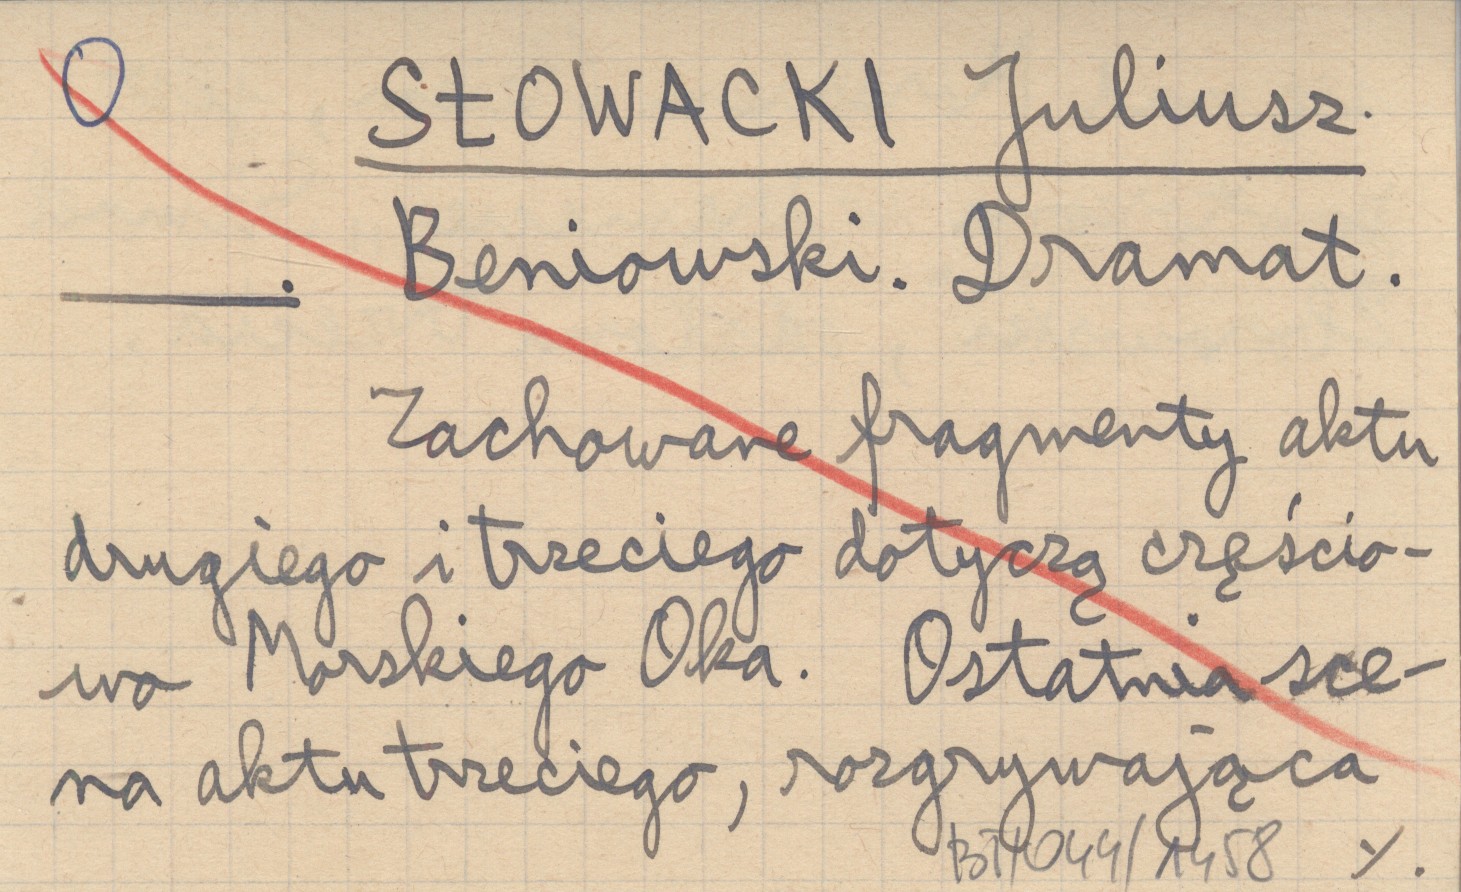 O SŁOWACKI Juliusz.
Beniowski. Dramat.
Zachowane fragmenty aktu
drugiego i trzeciego dotyczą częścio-
wo Morskiego Oka. Ostatnia sce-
na aktu trzeciego, rozgrywająca
/1458 ./.